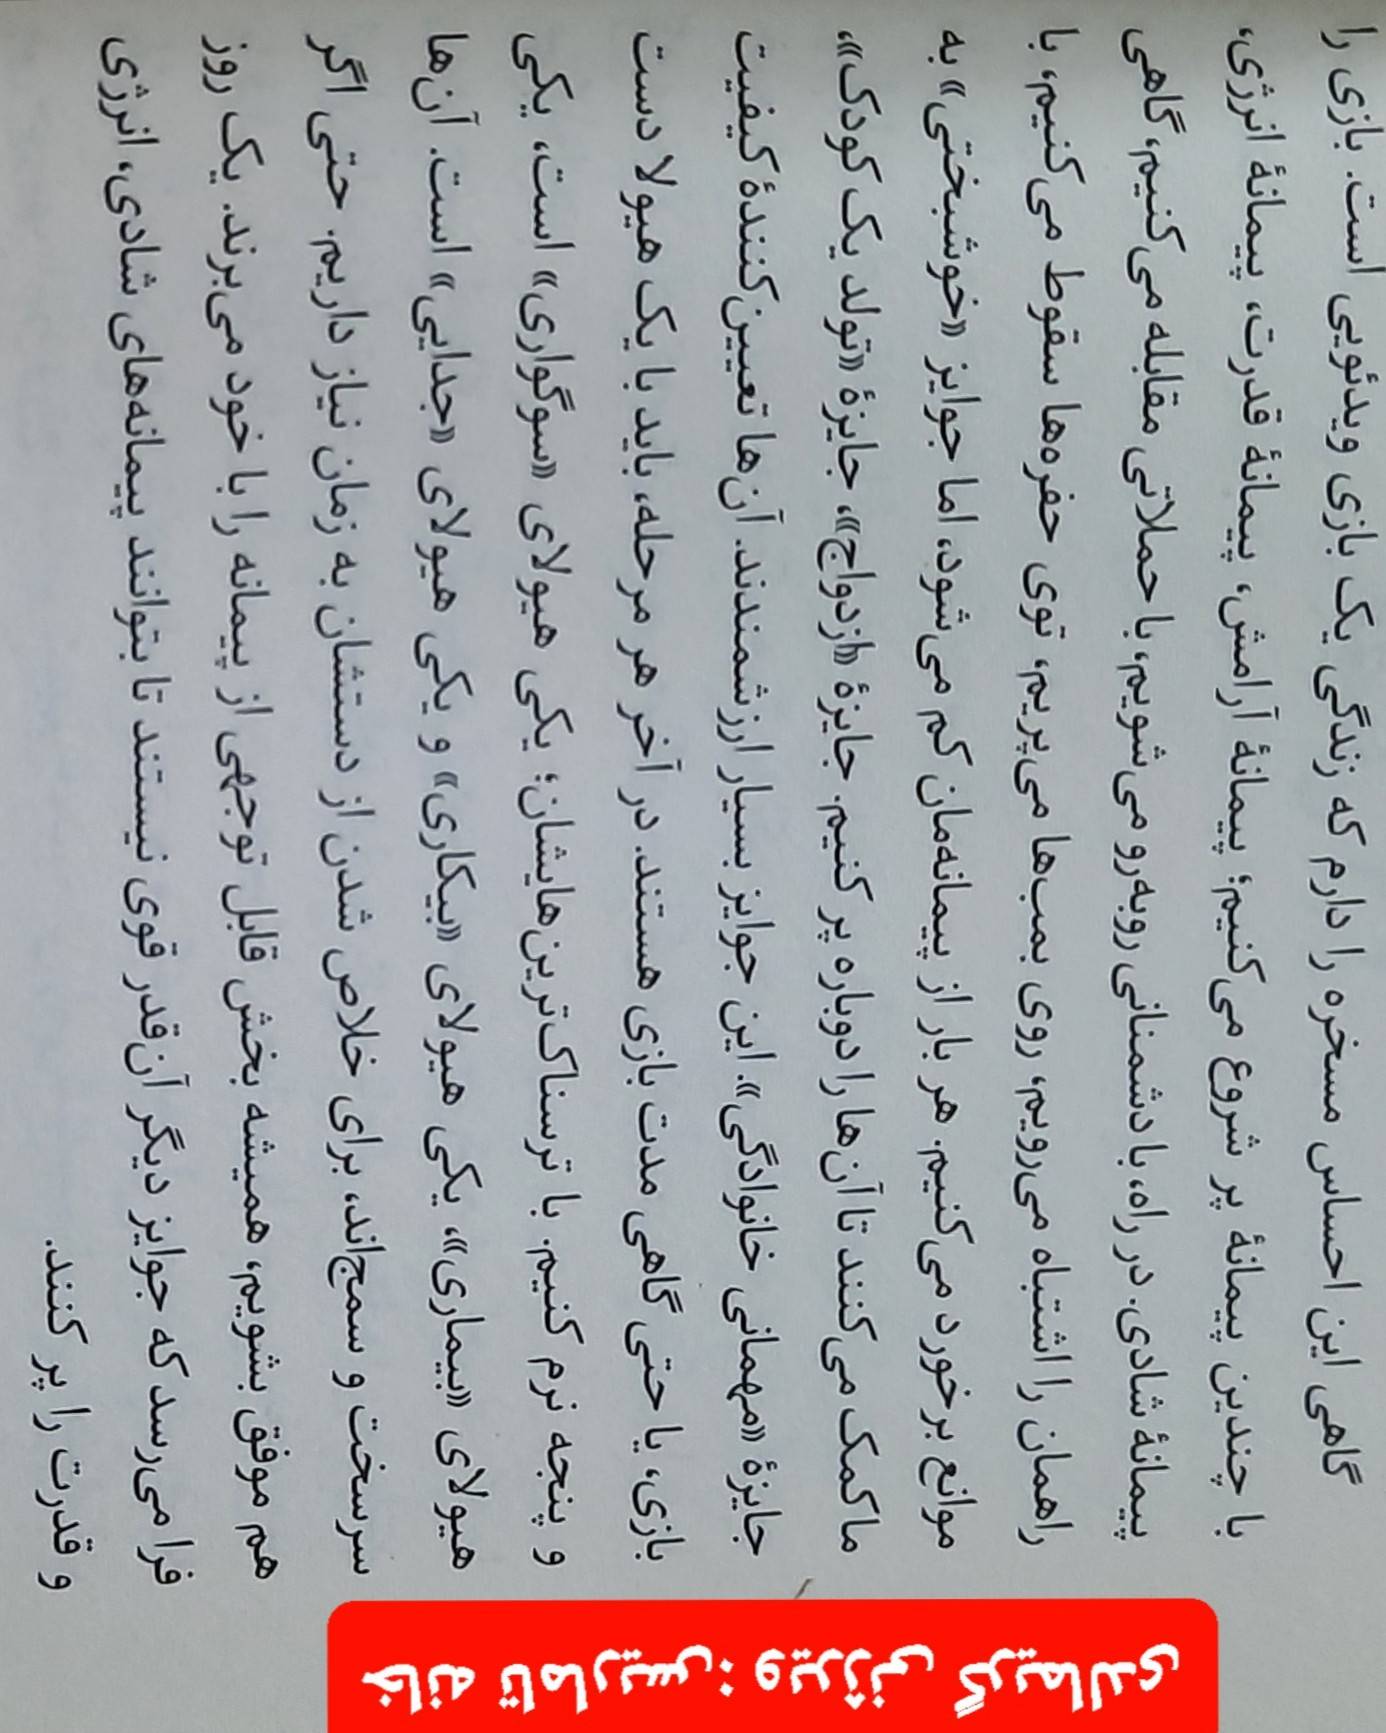 گاهی این احساس مسخره را دارم که زندگی یک بازی ویدئویی است. بازی را
با چندین پیمانهٔ پر شروع می‌کنیم؛ پیمانهٔ آرامش، پیمانهٔ قدرت، پیمانهٔ انرژی،
پیمانهٔ شادی. در راه، با دشمنانی روبه‌رو می‌شویم، با حملاتی مقابله می‌کنیم، گاهی
راهمان را اشتباه می‌رویم، روی بمب‌ها می‌پریم، توی حفره‌ها سقوط می‌کنیم، با
موانع برخورد می‌کنیم. هر بار از پیمانه‌مان کم می‌شود، اما جوایز «خوشبختی» به
ما کمک می‌کنند تا آن‌ها را دوباره پر کنیم. جایزهٔ «ازدواج»، جایزهٔ «تولد یک کودک»،
جایزهٔ «مهمانی خانوادگی». این جوایز بسیار ارزشمندند. آن‌ها تعیین‌کنندهٔ کیفیت
بازی، یا حتی گاهی مدت بازی هستند. در آخر هر مرحله، باید با یک هیولا دست
و پنجه نرم کنیم. با ترسناک‌ترین‌هایشان؛ یکی هیولای «سوگواری» است، یکی
هیولای «بیماری»، یکی هیولای «بیکاری» و یکی هیولای «جدایی» است. آن‌ها
سرسخت و سمج‌اند، برای خلاص شدن از دستشان به زمان نیاز داریم. حتی اگر
هم موفق بشویم، همیشه بخش قابل توجهی از پیمانه را با خود می‌برند. یک روز
فرا می‌رسد که جوایز دیگر آن‌قدر قوی نیستند تا بتوانند پیمانه‌های شادی، انرژی
و قدرت را پر کنند.
خانه تاماریس: ویرژنی گریمالدی